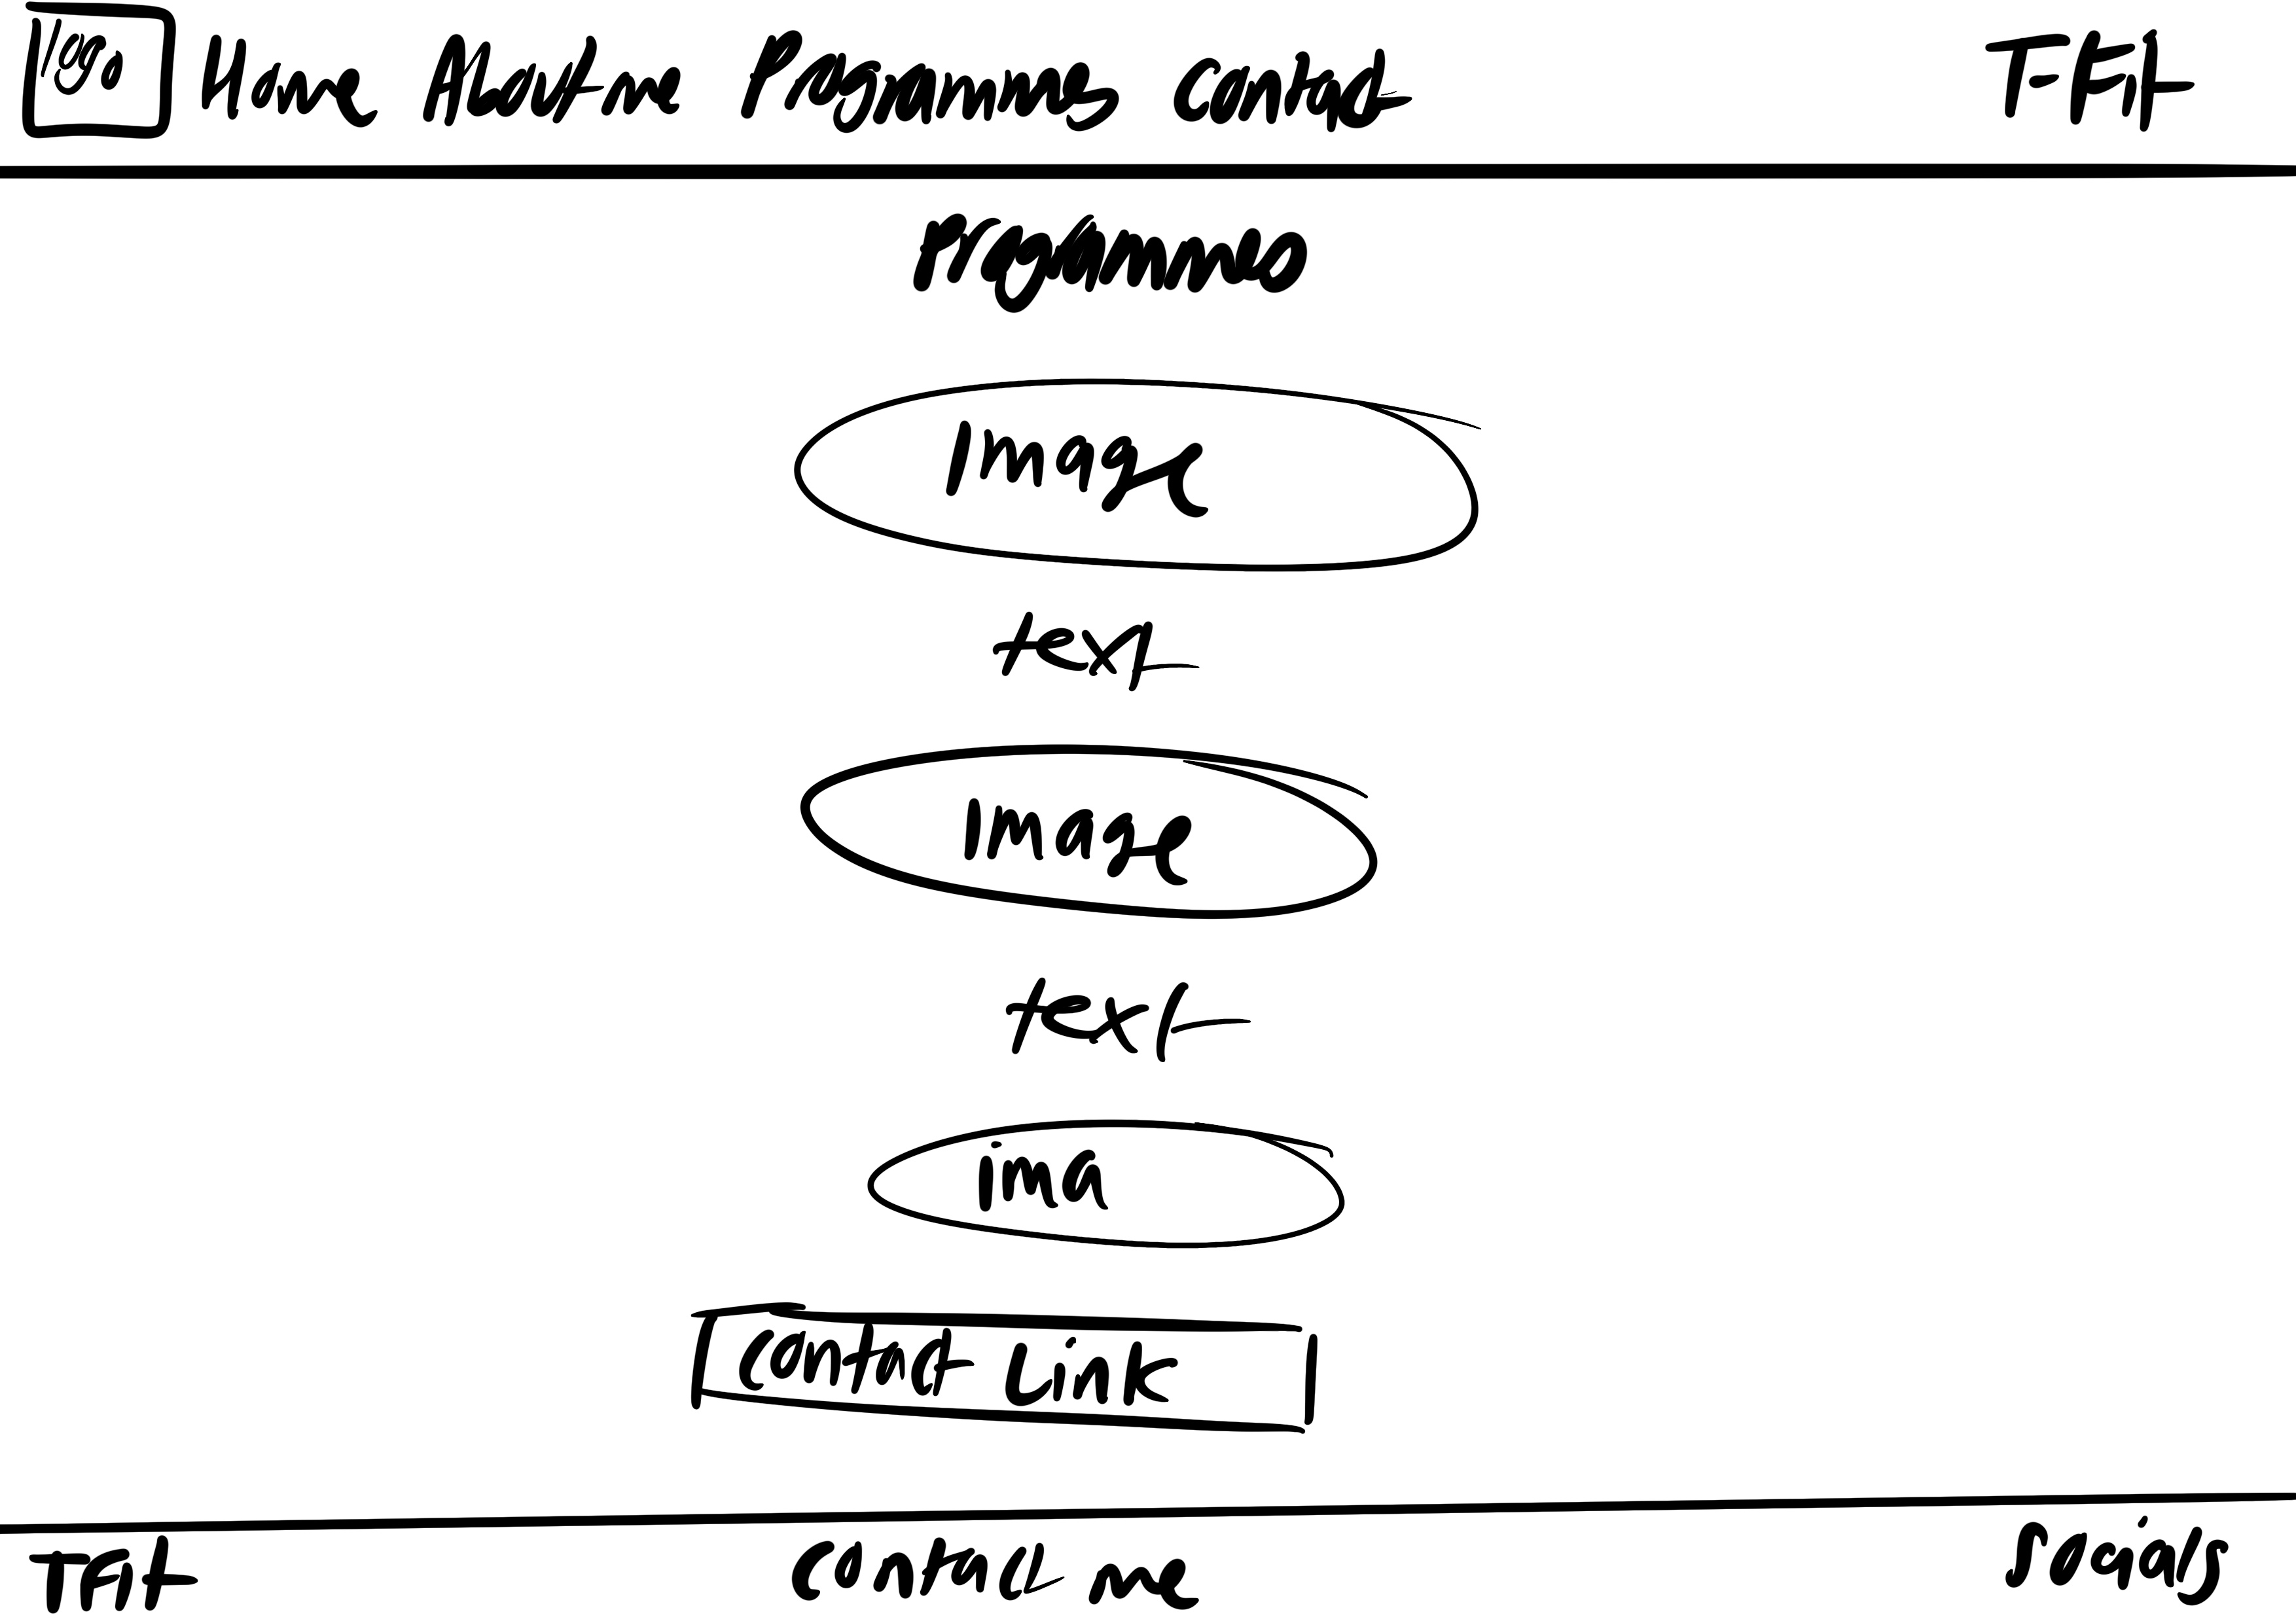 Logo Home About me Programmes contact T-Fit
Programmes
Image
text
Image
text
ima
Contact Link
TFit Contact me Socials